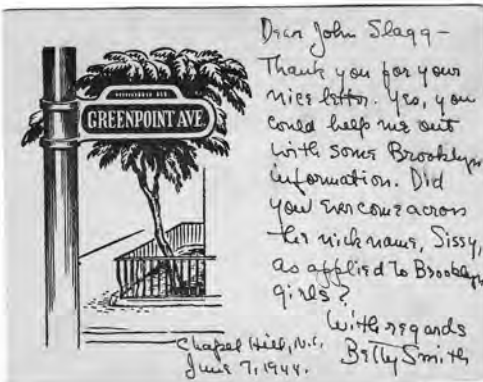 GREENPOINT AVE.
Dear John Slagg –
Thank you for your
nice letter. Yes, you
could help me out
with some Brooklyn
information. Did
you ever come across
the nickname, Sissy,
as applied to Brooklyn
girls?
With regards
Betty Smith
Chapel Hill, N.C.
June 7, 1944.